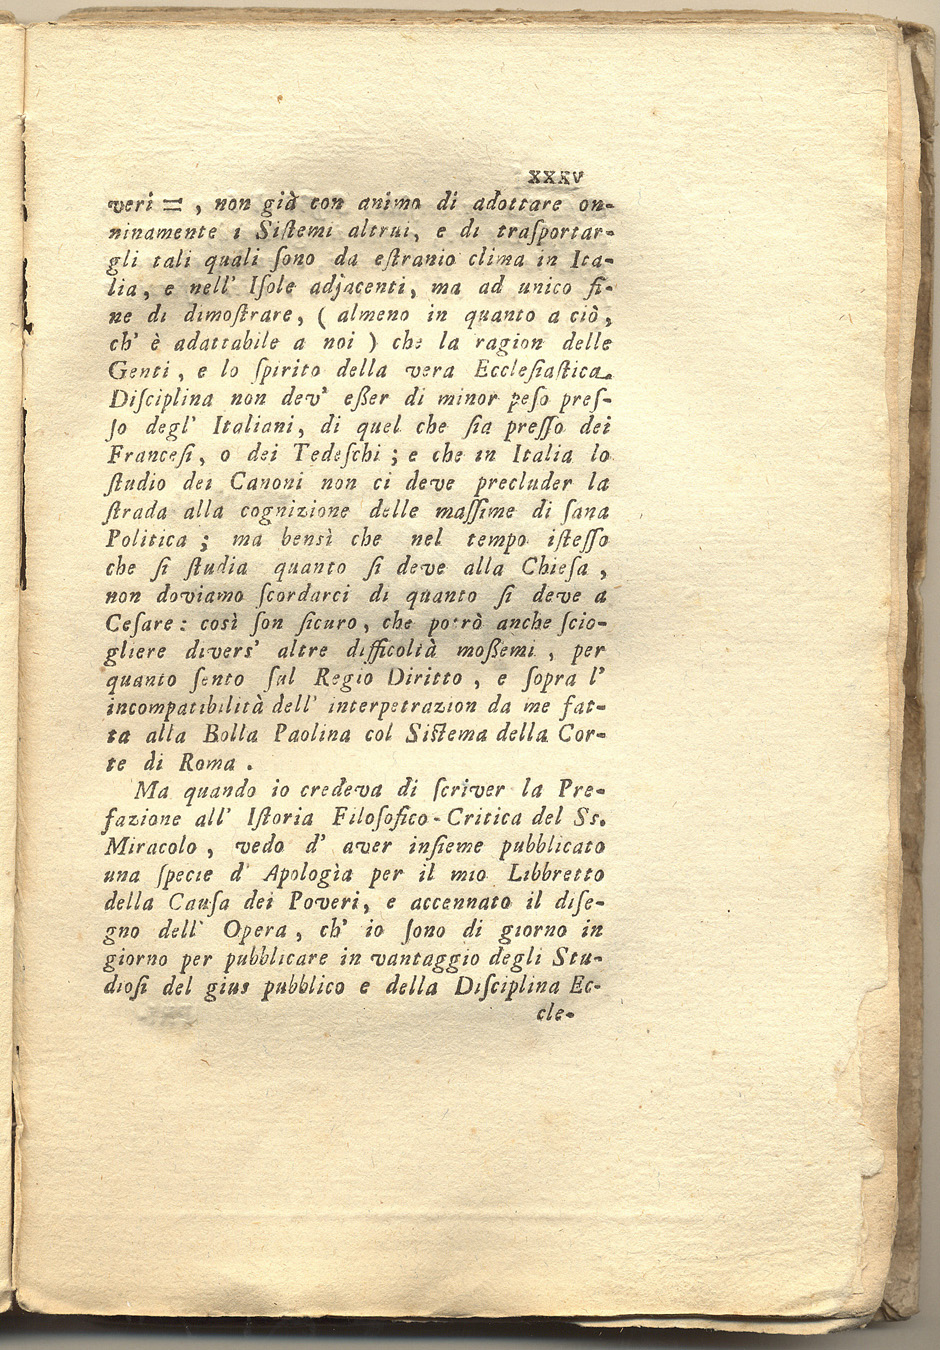 XXXV
veri = , non già con animo di adottare on-
ninamente i Siſtemi altrui, e di traſportar-
gli tali quali ſono da eſtranio clima in Ita-
lia, e nell' Iſole adjacenti, ma ad unico fi-
ne di dimoſtrare, ( almeno in quanto a ciò,
ch' è adattabile a noi ) che la ragion delle
Genti, e lo ſpirito della vera Eccleſiaſtica
Diſciplina non dev' eßer di minor peſo preſ-
ſo degl' Italiani, di quel che ſia preſſo dei
Franceſi, o dei Tedeſchi ; e che in Italia lo
ſtudio dei Canoni non ci deve precluder la
ſtrada alla cognizione delle maſſime di ſana
Politica ; ma bensì che nel tempo iſteſſo
che ſi ſtudia quanto ſi deve alla Chieſa ,
non doviamo ſcordarci di quanto ſi deve a
Ceſare : così ſon ſicuro, che potrò anche ſcio-
gliere divers' altre difficoltà moßemi , per
quanto ſento ſul Regio Diritto , e ſopra l'
incompatibilità dell' interpetrazion da me fat-
ta alla Bolla Paolina col Siſtema della Cor-
te di Roma .
Ma quando io credeva di ſcriver la Pre-
fazione all' Iſtoria Filoſofico-Critica del Ss.
Miracolo , vedo d' aver inſieme pubblicato
una ſpecie d' Apologìa per il mio Libbretto
della Cauſa dei Poveri, e accennato il diſe-
gno dell' Opera , ch' io ſono di giorno in
giorno per pubblicare in vantaggio degli Stu-
dioſi del gius pubblico e della Diſciplina Ec-
cle-